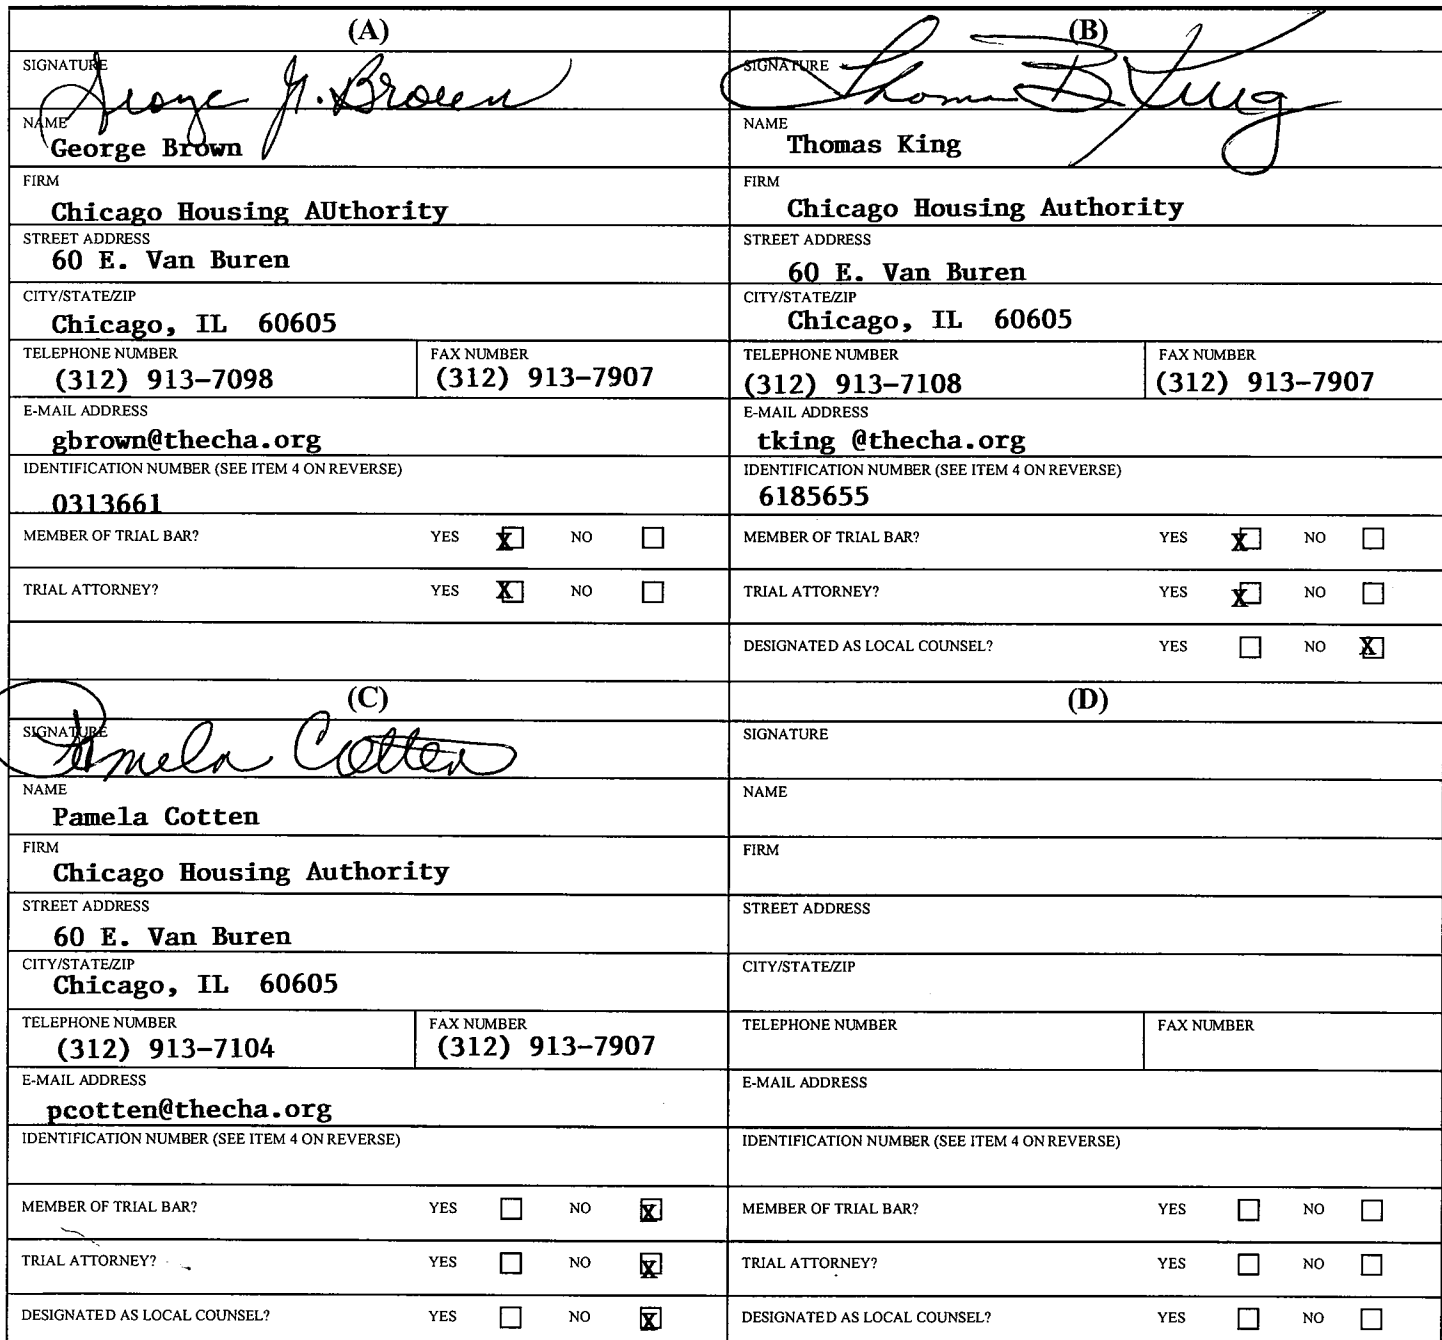 (A)
SIGNATURE
George N. Brown
NAME
George Brown
FIRM
Chicago Housing AUthority
STREET ADDRESS
60 E. Van Buren
CITY/STATE/ZIP
Chicago, IL 60605
TELEPHONE NUMBER FAX NUMBER
(312) 913-7098 (312) 913-7907
E-MAIL ADDRESS
gbrown@thecha.org
IDENTIFICATION NUMBER (SEE ITEM 4 ON REVERSE)
0313661
MEMBER OF TRIAL BAR? YES X NO
TRIAL ATTORNEY? YES X NO
(B)
SIGNATURE
Thomas B King
NAME
Thomas King
FIRM
Chicago Housing Authority
STREET ADDRESS
60 E. Van Buren
CITY/STATE/ZIP
Chicago, IL 60605
TELEPHONE NUMBER FAX NUMBER
(312) 913-7108 (312) 913-7907
E-MAIL ADDRESS
tking @thecha.org
IDENTIFICATION NUMBER (SEE ITEM 4 ON REVERSE)
6185655
MEMBER OF TRIAL BAR? YES X NO
TRIAL ATTORNEY? YES X NO
DESIGNATED AS LOCAL COUNSEL? YES NO X
(C)
SIGNATURE
Pamela Cotten
NAME
Pamela Cotten
FIRM
Chicago Housing Authority
STREET ADDRESS
60 E. Van Buren
CITY/STATE/ZIP
Chicago, IL 60605
TELEPHONE NUMBER FAX NUMBER
(312) 913-7104 (312) 913-7907
E-MAIL ADDRESS
pcotten@thecha.org
IDENTIFICATION NUMBER (SEE ITEM 4 ON REVERSE)
MEMBER OF TRIAL BAR? YES NO X
TRIAL ATTORNEY? YES NO X
DESIGNATED AS LOCAL COUNSEL? YES NO X
(D)
SIGNATURE
NAME
FIRM
STREET ADDRESS
CITY/STATE/ZIP
TELEPHONE NUMBER FAX NUMBER
E-MAIL ADDRESS
IDENTIFICATION NUMBER (SEE ITEM 4 ON REVERSE)
MEMBER OF TRIAL BAR? YES NO
TRIAL ATTORNEY? YES NO
DESIGNATED AS LOCAL COUNSEL? YES NO